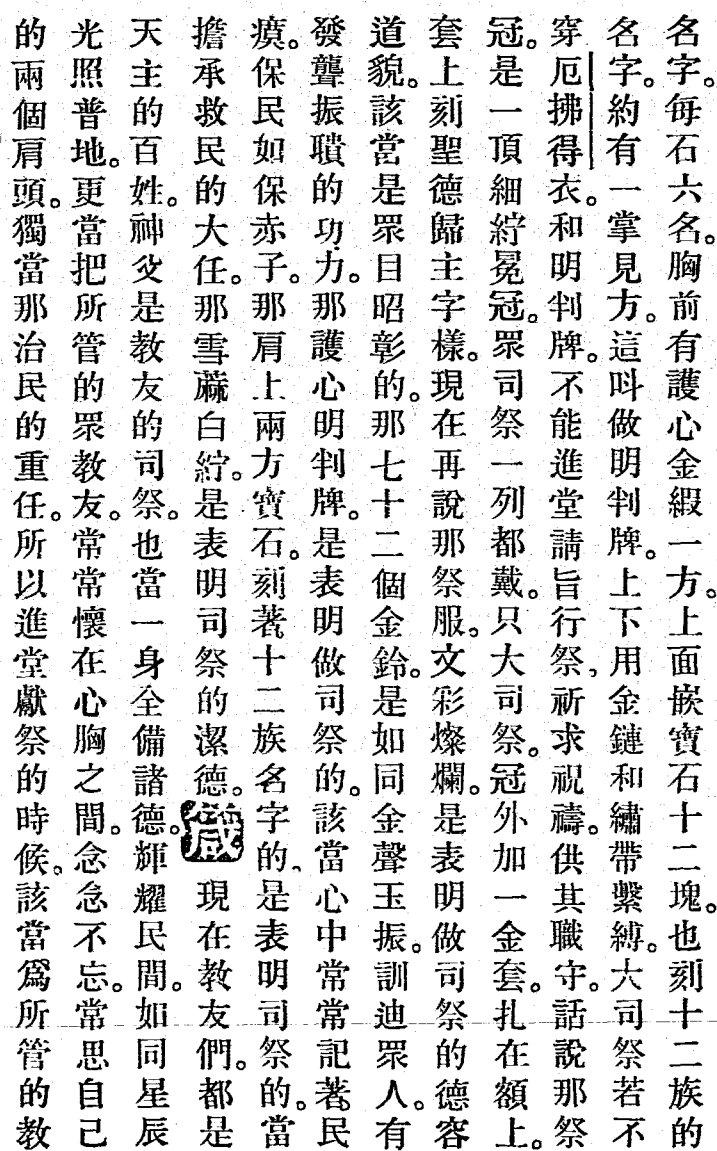 名字。每石六名。胸前有護心金緞一方。上面嵌寶石十二塊。也刻十二族的
名字。約有一掌見方。這呌做明判牌。上下用金鏈和繡帶繫縛。大司祭若不
穿厄拂得衣。和明判牌。不能進堂請旨行祭、祈求祝禱。供其職守。話說那祭
冠。是一頂細紵冕冠。眾司祭一列都戴。只大司祭。冠外加一金套。扎在額上。
套上刻聖德歸主字樣。現在再說那祭服。文彩燦爛。是表明做司祭的德容
道貌。該當是眾目昭彰的。那七十二個金鈴。是如同金聲玉振。訓迪眾人。有
發聾振聵的功力。那護心明判牌。是表明做司祭的。該當心中常常記著。民
瘼。保民如保赤子。那肩上兩方寶石。刻著十二族名字的、是表明司祭的。當
擔承救民的大任。那雪蔴白紵。是表明司祭的潔德。箴現在教友們。都是
天主的百姓。神父是教友的司祭。也當一身全備諸德。輝耀民間。如同星辰
光照普地。更當把所管的眾教友。常常懷在心胸之間。念念不忘。常思自己
的兩個肩頭。獨當那治民的重任。所以進堂獻祭的時候。該當爲所管的教